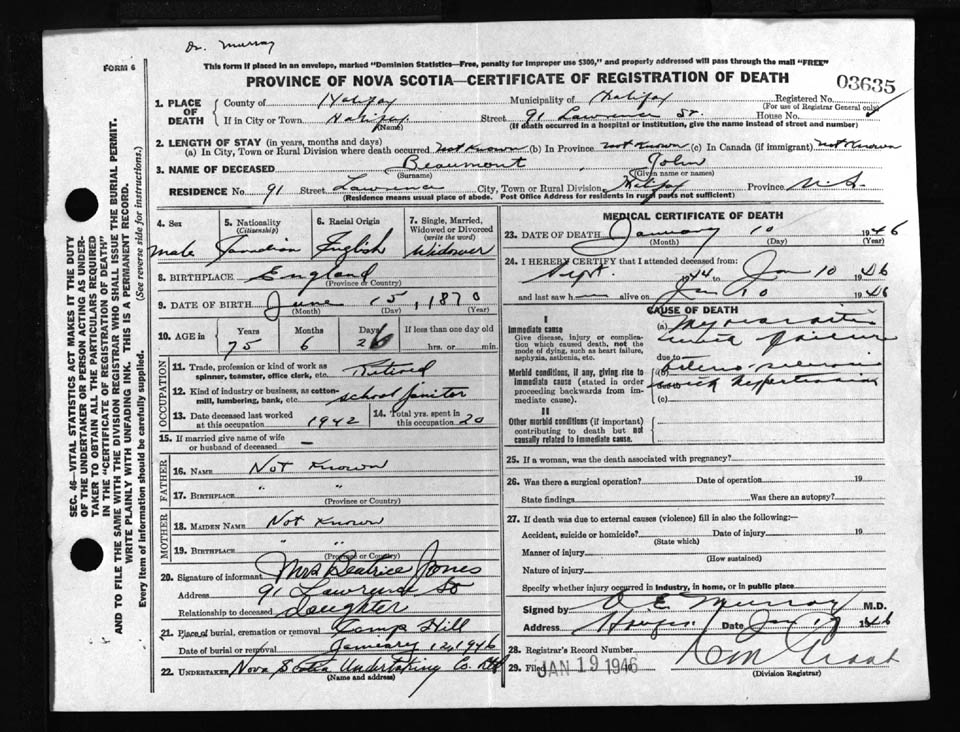 Dr. Murray
FORM 6
This form if placed in an envelope, marked "Dominion Statistics—Free, penalty for improper use $300," and properly addressed will pass through the mail "FREE"
PROVINCE OF NOVA SCOTIA—CERTIFICATE OF REGISTRATION OF DEATH
03635
1. PLACE OF DEATH
County of Halifax Municipality of Halifax Registered No.
(For use of Registrar General only)
If in City or Town Halifax Street 91 Lawrence St. House No.
(Name) (If death occurred in a hospital or institution, give the name instead of street and number)
2. LENGTH OF STAY (in years, months and days)
(a) In City, Town or Rural Division where death occurred Not Known (b) In Province Not Known (c) In Canada (if immigrant) Not Known
3. NAME OF DECEASED Beaumont John
(Surname) (Given name or names)
RESIDENCE No. 91 Street Lawrence City, Town or Rural Division Halifax Province N.S.
(Residence means usual place of abode. Post Office Address for residents in rural parts not sufficient)
4. Sex 5. Nationality (Citizenship) 6. Racial Origin 7. Single, Married, Widowed or Divorced (write the word)
male Canadian English Widower
8. BIRTHPLACE England
(Province or Country)
9. DATE OF BIRTH June 15, 1870
(Month) (Day) (Year)
10. AGE in Years Months Days If less than one day old
75 6 26 hrs. or min.
OCCUPATION
11. Trade, profession or kind of work as spinner, teamster, office clerk, etc. Retired
12. Kind of industry or business, as cotton-mill, lumbering, bank, etc. school janitor
13. Date deceased last worked at this occupation 1942 14. Total yrs. spent in this occupation 20
15. If married give name of wife or husband of deceased —
FATHER
16. NAME Not Known
17. BIRTHPLACE " "
(Province or Country)
MOTHER
18. MAIDEN NAME Not Known
19. BIRTHPLACE " "
(Province or Country)
20. Signature of informant Mrs Beatrice Jones
Address 91 Lawrence St
Relationship to deceased daughter
21. Place of burial, cremation or removal Camp Hill
Date of burial or removal January 12, 1946
22. UNDERTAKER Nova Scotia Undertaking Co. Ltd
(Name and address)
MEDICAL CERTIFICATE OF DEATH
23. DATE OF DEATH January 10 1946
(Month) (Day) (Year)
24. I HEREBY CERTIFY that I attended deceased from:
Sept. 1944 to Jan 10 1946
and last saw h— alive on Jan 10 1946
CAUSE OF DEATH
I
Immediate cause
Give disease, injury or complication which caused death, not the mode of dying, such as heart failure, asphyxia, asthenia, etc.
(a) Myocarditis
with failure
due to
Morbid conditions, if any, giving rise to immediate cause (stated in order proceeding backwards from immediate cause).
(b)
with hypertension
(c)
II
Other morbid conditions (if important) contributing to death but not causally related to immediate cause.
25. If a woman, was the death associated with pregnancy?
26. Was there a surgical operation? Date of operation 19
State findings Was there an autopsy?
27. If death was due to external causes (violence) fill in also the following:—
Accident, suicide or homicide? Date of injury 19
(State which)
Manner of injury
(How sustained)
Nature of injury
Specify whether injury occurred in industry, in home, or in public place
Signed by E. Murray M.D.
Address Date Jan 1946
28. Registrar's Record Number
29. Filed JAN 19 1946
(Division Registrar)
SEC. 46—VITAL STATISTICS ACT MAKES IT THE DUTY
OF THE UNDERTAKER OR PERSON ACTING AS UNDERTAKER TO OBTAIN ALL THE PARTICULARS REQUIRED
IN THE "CERTIFICATE OF REGISTRATION OF DEATH"
AND TO FILE THE SAME WITH THE DIVISION REGISTRAR WHO SHALL ISSUE THE BURIAL PERMIT.
WRITE PLAINLY WITH UNFADING INK. THIS IS A PERMANENT RECORD.
Every item of information should be carefully supplied. (See reverse side for instructions.)